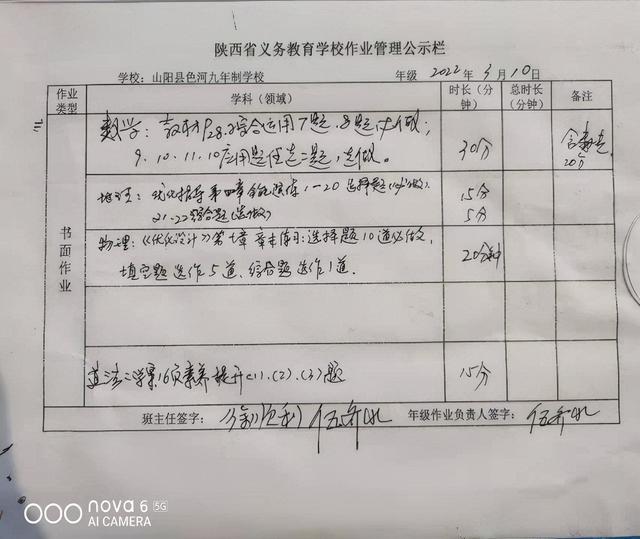 陕西省义务教育学校作业管理公示栏
学校：山阳县色河九年制学校 年级 2022年3月10日
作业类型 学科（领域） 时长（分钟） 总时长（分钟） 备注
书面作业
数学：教材P28.综合运用7题、8题必做；
9、10、11、10应用题任选二题，选做。 30分 20分
优化指导第四章 1-20选择题（必做）、 15分
21-22综合题（选做） 5分
物理：《优化设计》第七章 章末练习：选择题10道必做，
填空题选作5道、综合题选作1道。 20分钟
道法：学案16页素养提升（1）、（2）、（3）题 15分
班主任签字： 年级作业负责人签字：
nova 6 5G
AI CAMERA